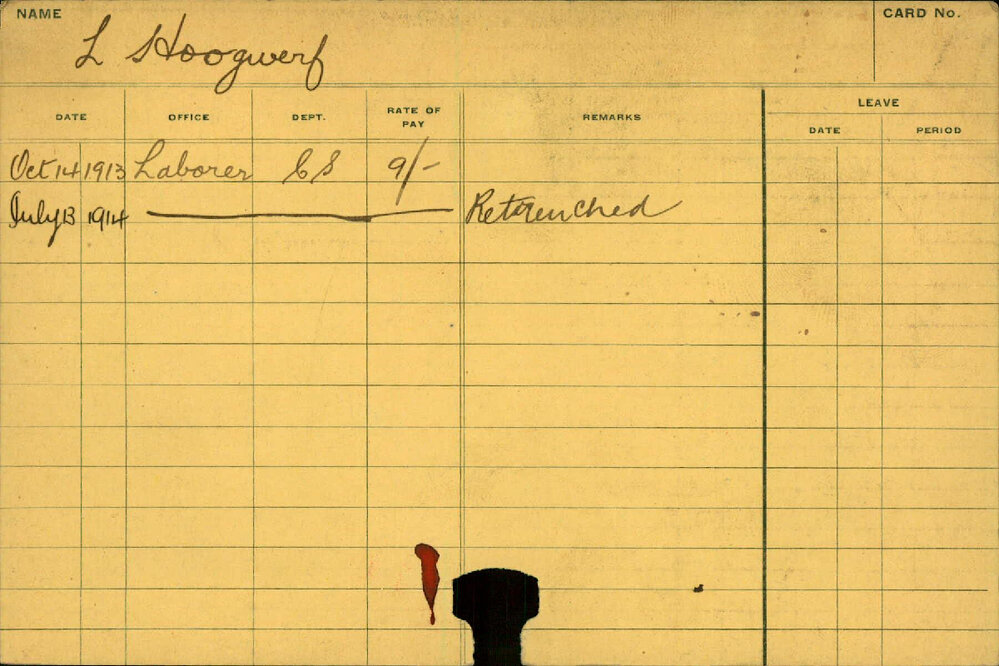 NAME
L Hoogwerf
CARD No.
DATE OFFICE DEPT. RATE OF PAY REMARKS LEAVE
DATE PERIOD
Oct 14 1913 Laborer CS 9/-
July 13 1914 Retrenched